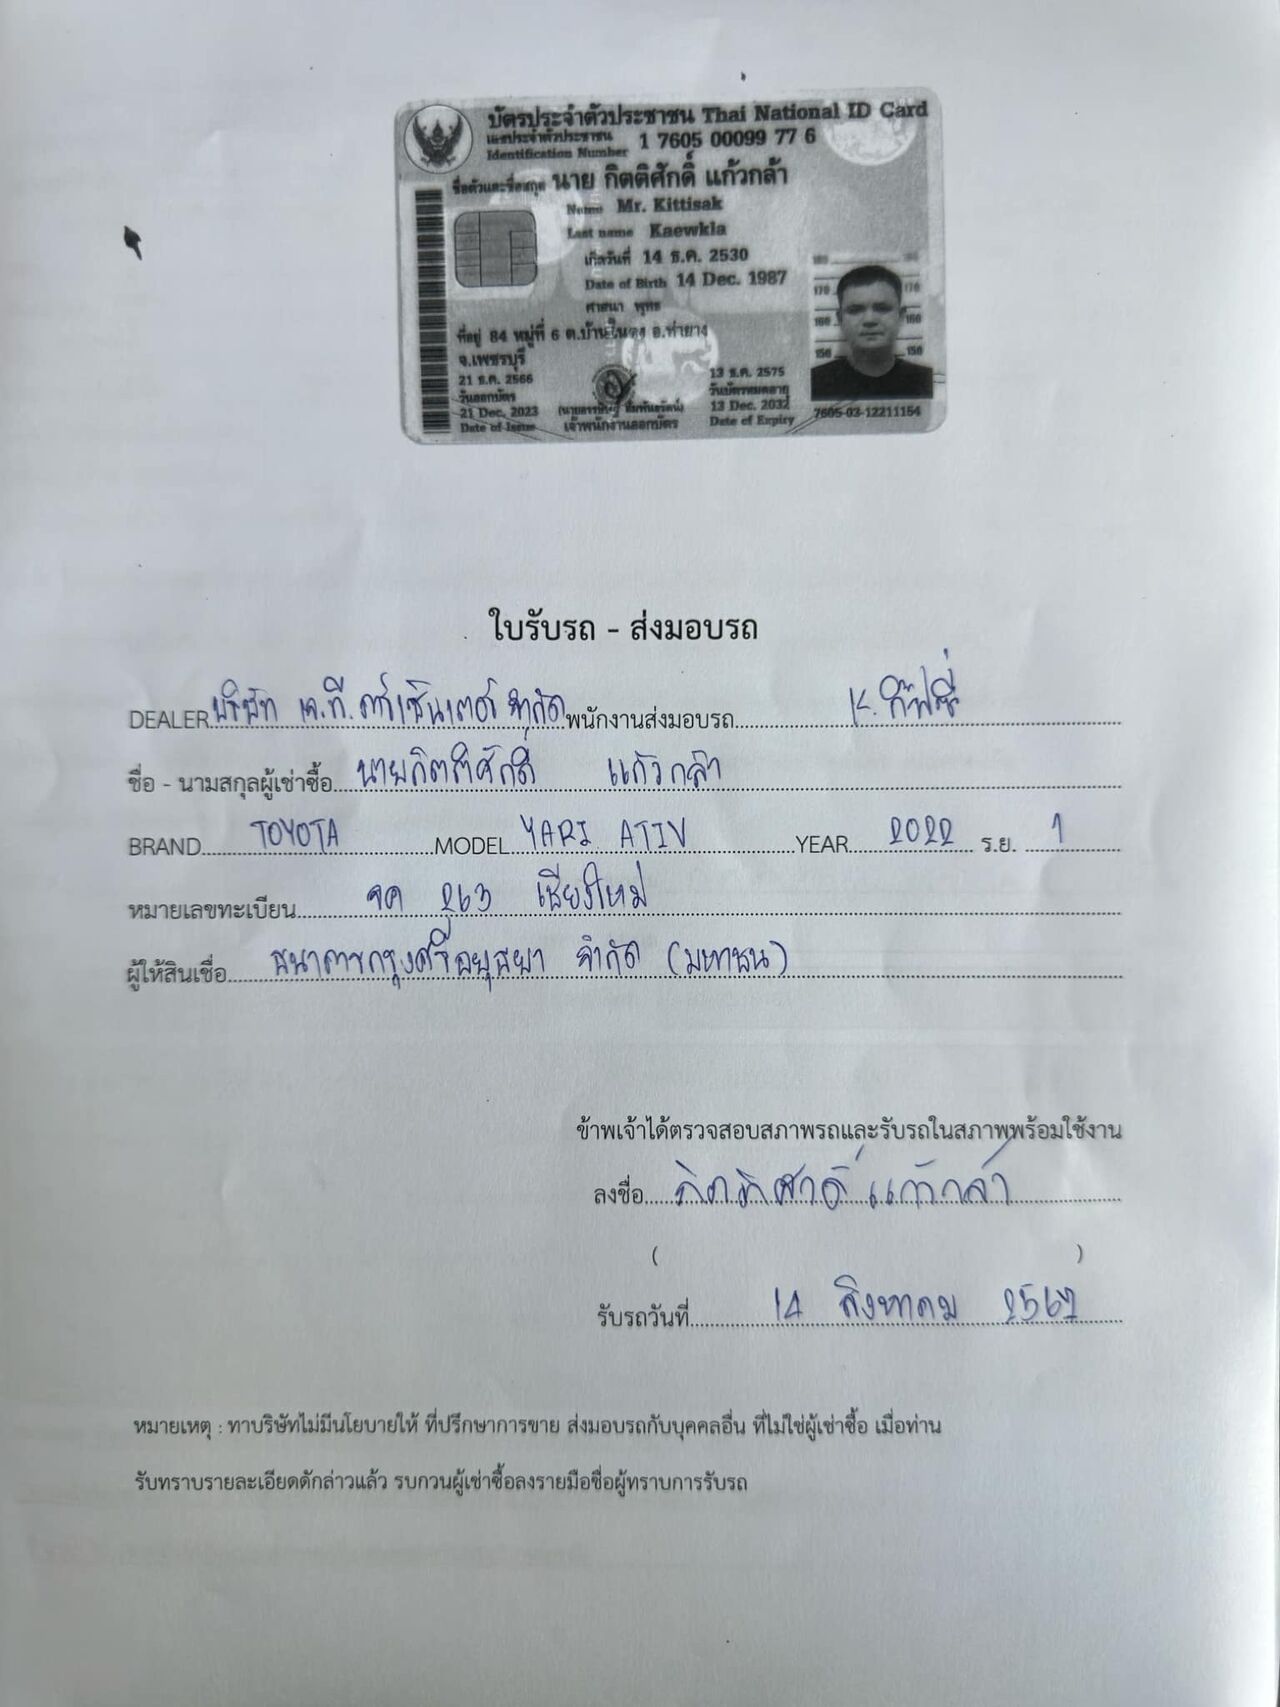 บัตรประจำตัวประชาชน Thai National ID Card
เลขประจำตัวประชาชน 1 7605 00099 77 6
Identification Number
ชื่อตัวและชื่อสกุล นาย กิตติศักดิ์ แก้วกล้า
Name Mr. Kittisak
Last name Kaewkla
เกิดวันที่ 14 ธ.ค. 2530
Date of Birth 14 Dec. 1987
ศาสนา พุทธ
ที่อยู่ 84 หมู่ที่ 6 ต.บ้านในดง อ.ท่ายาง
จ.เพชรบุรี
21 ธ.ค. 2566
วันออกบัตร
21 Dec. 2023
Date of Issue
เจ้าพนักงานออกบัตร
13 ธ.ค. 2575
วันบัตรหมดอายุ
13 Dec. 2032
Date of Expiry
180 180
170 170
160 160
150 150
7605-03-12211154
ใบรับรถ - ส่งมอบรถ
DEALER บริษัท เจ.ที.คาร์เซ็นเตอร์ จำกัด พนักงานส่งมอบรถ K.กิ๊ฟซี่
ชื่อ - นามสกุลผู้เช่าซื้อ นายกิตติศักดิ์ แก้วกล้า
BRAND TOYOTA MODEL YARI ATIV YEAR 2022 ร.ย. 1
หมายเลขทะเบียน จค 263 เชียงใหม่
ผู้ให้สินเชื่อ ธนาคารกรุงศรีอยุธยา จำกัด (มหาชน)
ข้าพเจ้าได้ตรวจสอบสภาพรถและรับรถในสภาพพร้อมใช้งาน
ลงชื่อ กิตติศักดิ์ แก้วกล้า
( )
รับรถวันที่ 14 สิงหาคม 2567
หมายเหตุ : ทาบริษัทไม่มีนโยบายให้ ที่ปรึกษาการขาย ส่งมอบรถกับบุคคลอื่น ที่ไม่ใช่ผู้เช่าซื้อ เมื่อท่าน
รับทราบรายละเอียดดักล่าวแล้ว รบกวนผู้เช่าซื้อลงรายมือชื่อผู้ทราบการรับรถ